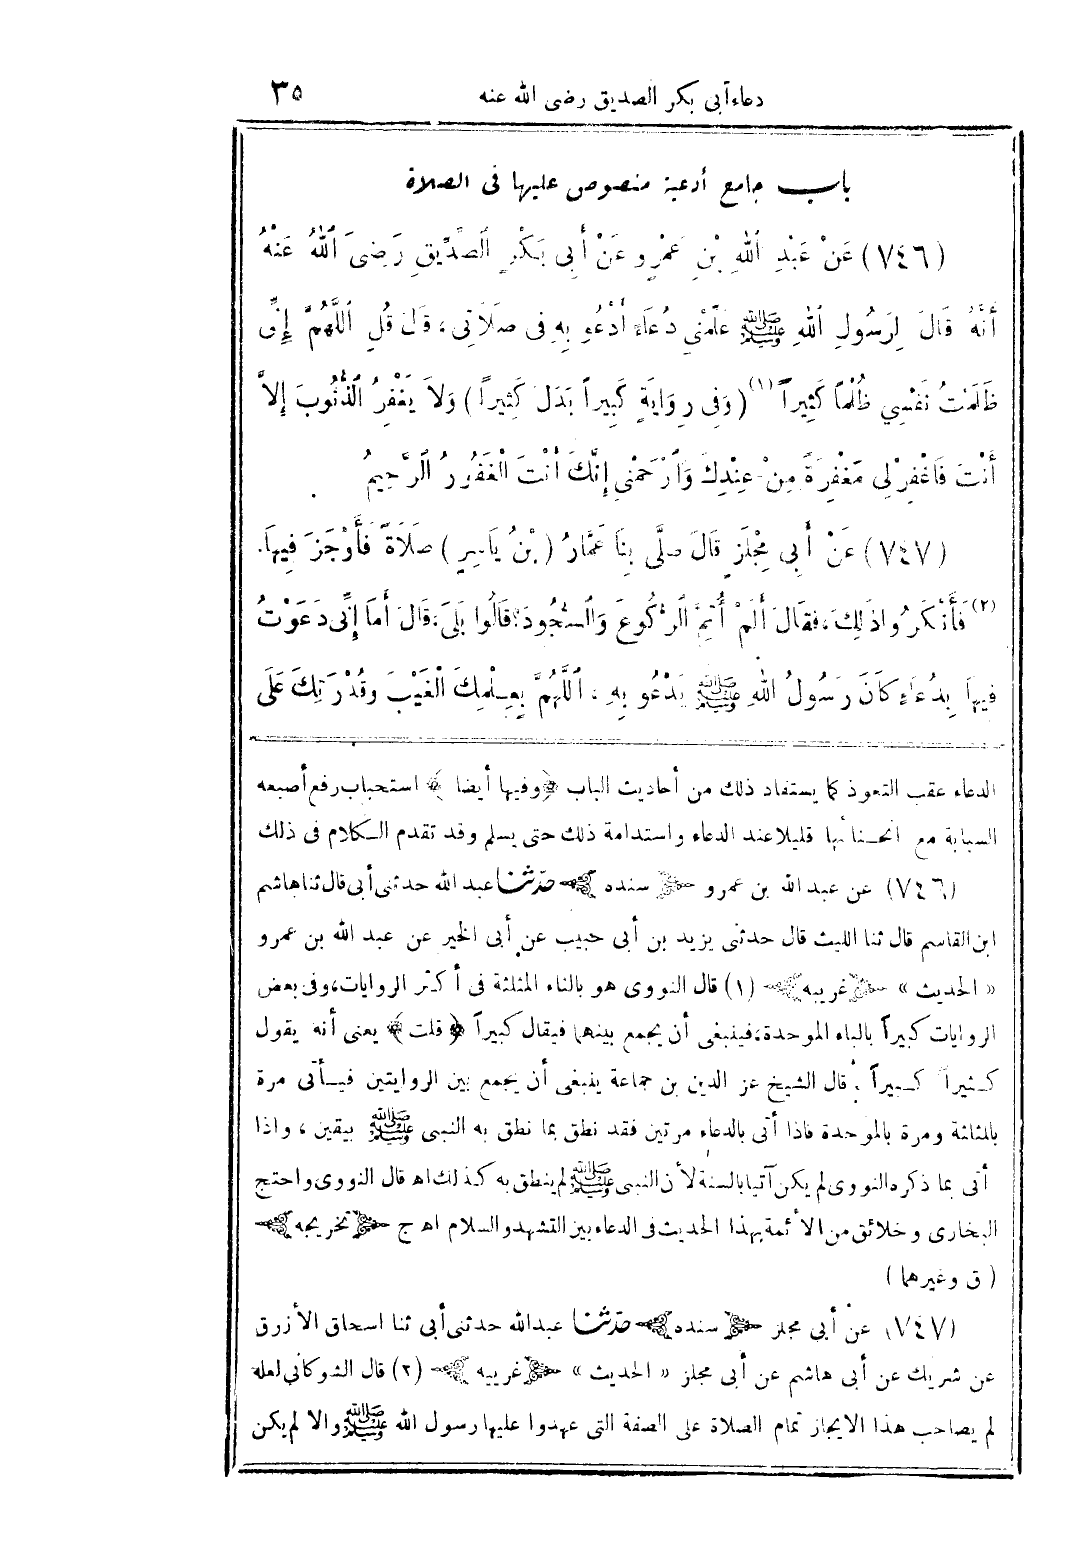 دعاء أبي بكر الصديق رضى الله عنه ٣٥
باب جامع أدعية منصوص عليها فى الصلاة
(٧٤٦) عَنْ عَبْدِ اللهِ بْنِ عَمْرٍو عَنْ أَبِى بَكْرٍ الصِّدِّيقِ رَضِىَ اللهُ عَنْهُ
أَنَّهُ قَالَ لِرَسُولِ اللهِ ﷺ عَلِّمْنِي دُعَاءً أَدْعُو بِهِ فِى صَلَاتِى، قَالَ قُلِ اللَّهُمَّ إِنِّى
ظَلَمْتُ نَفْسِي ظُلْمًا كَثِيراً (١) (وَفِى رِوَايَةٍ كَبِيراً بَدَلَ كَثِيراً) وَلَا يَغْفِرُ الذُّنُوبَ إِلاَّ
أَنْتَ فَاغْفِرْ لِى مَغْفِرَةً مِنْ عِنْدِكَ وَارْحَمْنِى إِنَّكَ أَنْتَ الْغَفُورُ الرَّحِيمُ
(٧٤٧) عَنْ أَبِى مِجْلَزٍ قَالَ صَلَّى بِنَا عَمَّارُ (بْنُ يَاسِرٍ) صَلَاةً فَأَوْجَزَ فِيهَا.
(٢) فَأَنْكَرُوا ذَلِكَ، فَقَالَ أَلَمْ أُتِمَّ الرُّكُوعَ وَالسُّجُودَ؟ قَالُوا بَلَى، قَالَ أَمَا إِنِّى دَعَوْتُ
فِيهَا بِدُعَاءٍ كَانَ رَسُولُ اللهِ ﷺ يَدْعُو بِهِ، اللَّهُمَّ بِعِلْمِكَ الْغَيْبَ وَقُدْرَتِكَ عَلَى
الدعاء عقب التعوذ كما يستفاد ذلك من أحاديث الباب ﴿وفيها أيضا﴾ استحباب رفع أصبعه
السبابة مع انحنائها قليلا عند الدعاء واستدامة ذلك حتى يسلم وقد تقدم الكلام فى ذلك
(٧٤٦) عن عبد الله بن عمرو ﴿سنده﴾ حدّثنا عبد الله حدثنى أبى قال ثنا هاشم
ابن القاسم قال ثنا الليث قال حدثنى يزيد بن أبى حبيب عن أبى الخير عن عبد الله بن عمرو
«الحديث» ﴿غريبه﴾ (١) قال النووى هو بالثاء المثلثة فى أكثر الروايات، وفى بعض
الروايات كبيراً بالباء الموحدة، فينبغى أن يجمع بينهما فيقال كبيراً ﴿قلت﴾ يعنى أنه يقول
كثيراً كبيراً. قال الشيخ عز الدين بن جماعة ينبغى أن يجمع بين الروايتين فيأتى مرة
بالمثلثة ومرة بالموحدة فاذا أتى بالدعاء مرتين فقد نطق بما نطق به النبى ﷺ بيقين، واذا
أتى بما ذكره النووى لم يكن آتيا بالسنة لأن النبى ﷺ لم ينطق به كذلك اهـ قال النووى واحتج
البخارى وخلائق من الأئمة بهذا الحديث فى الدعاء بين التشهد والسلام اهـ ج ﴿تخريجه﴾
(ق وغيرهما)
(٧٤٧) عن أبى مجلز ﴿سنده﴾ حدّثنا عبد الله حدثنى أبى ثنا اسحاق الأزرق
عن شريك عن أبى هاشم عن أبى مجلز «الحديث» ﴿غريبه﴾ (٢) قال الشوكانى لعله
لم يصاحب هذا الايجاز تمام الصلاة على الصفة التى عهدوا عليها رسول الله ﷺ والا لم يكن